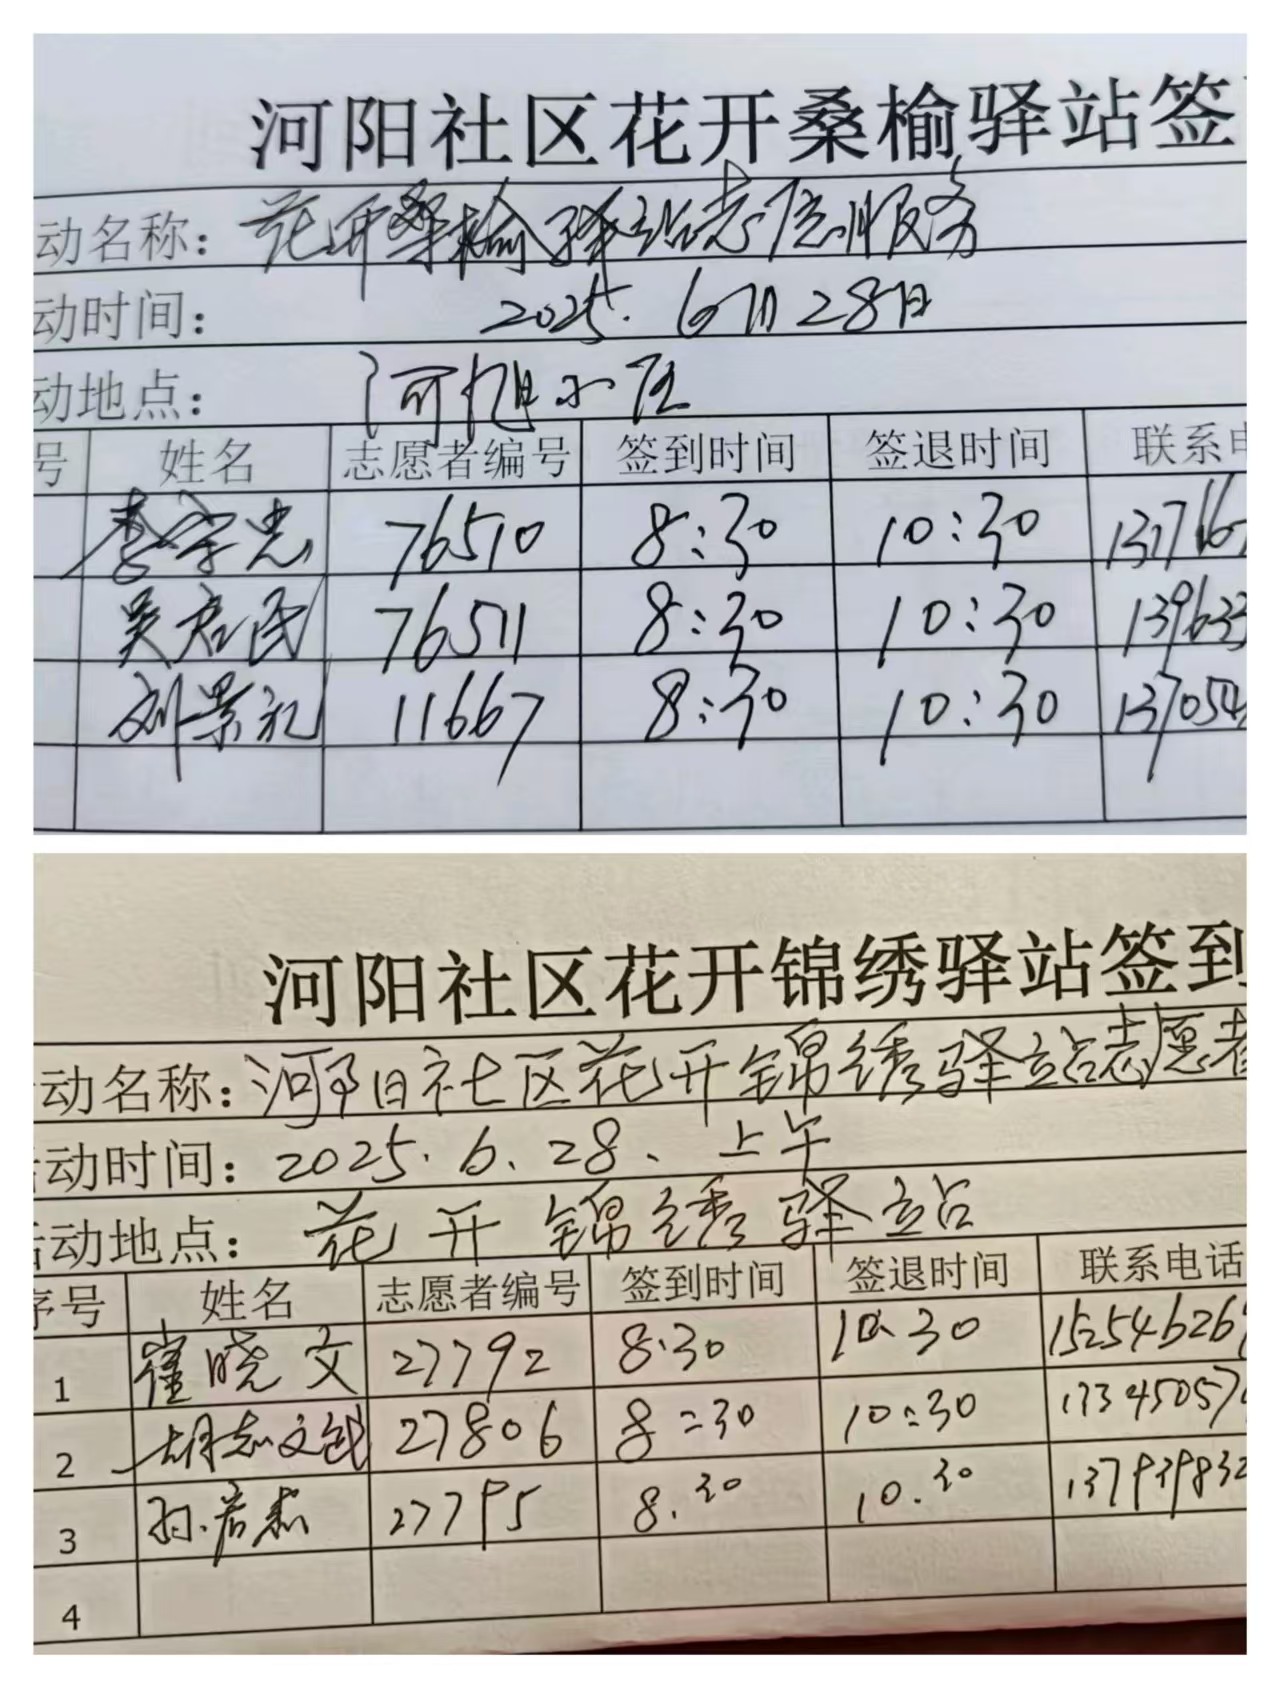 河阳社区花开桑榆驿站签
动名称：花开桑榆驿站志愿服务
动时间：2025.6月28日
动地点：河旭小区
号 姓名 志愿者编号 签到时间 签退时间 联系电
李守忠 76510 8:30 10:30 137716
吴君民 76511 8:30 10:30 139633
刘景礼 11667 8:30 10:30 137054
河阳社区花开锦绣驿站签到
动名称：河阳社区花开锦绣驿站志愿者
活动时间：2025.6.28、上午
活动地点：花开锦绣驿站
序号 姓名 志愿者编号 签到时间 签退时间 联系电话
1 崔晓文 27792 8.30 10.30 152546267
2 胡志文 27806 8:30 10:30 13345057
3 孙岩杰 27795 8.30 10.30 137939832
4